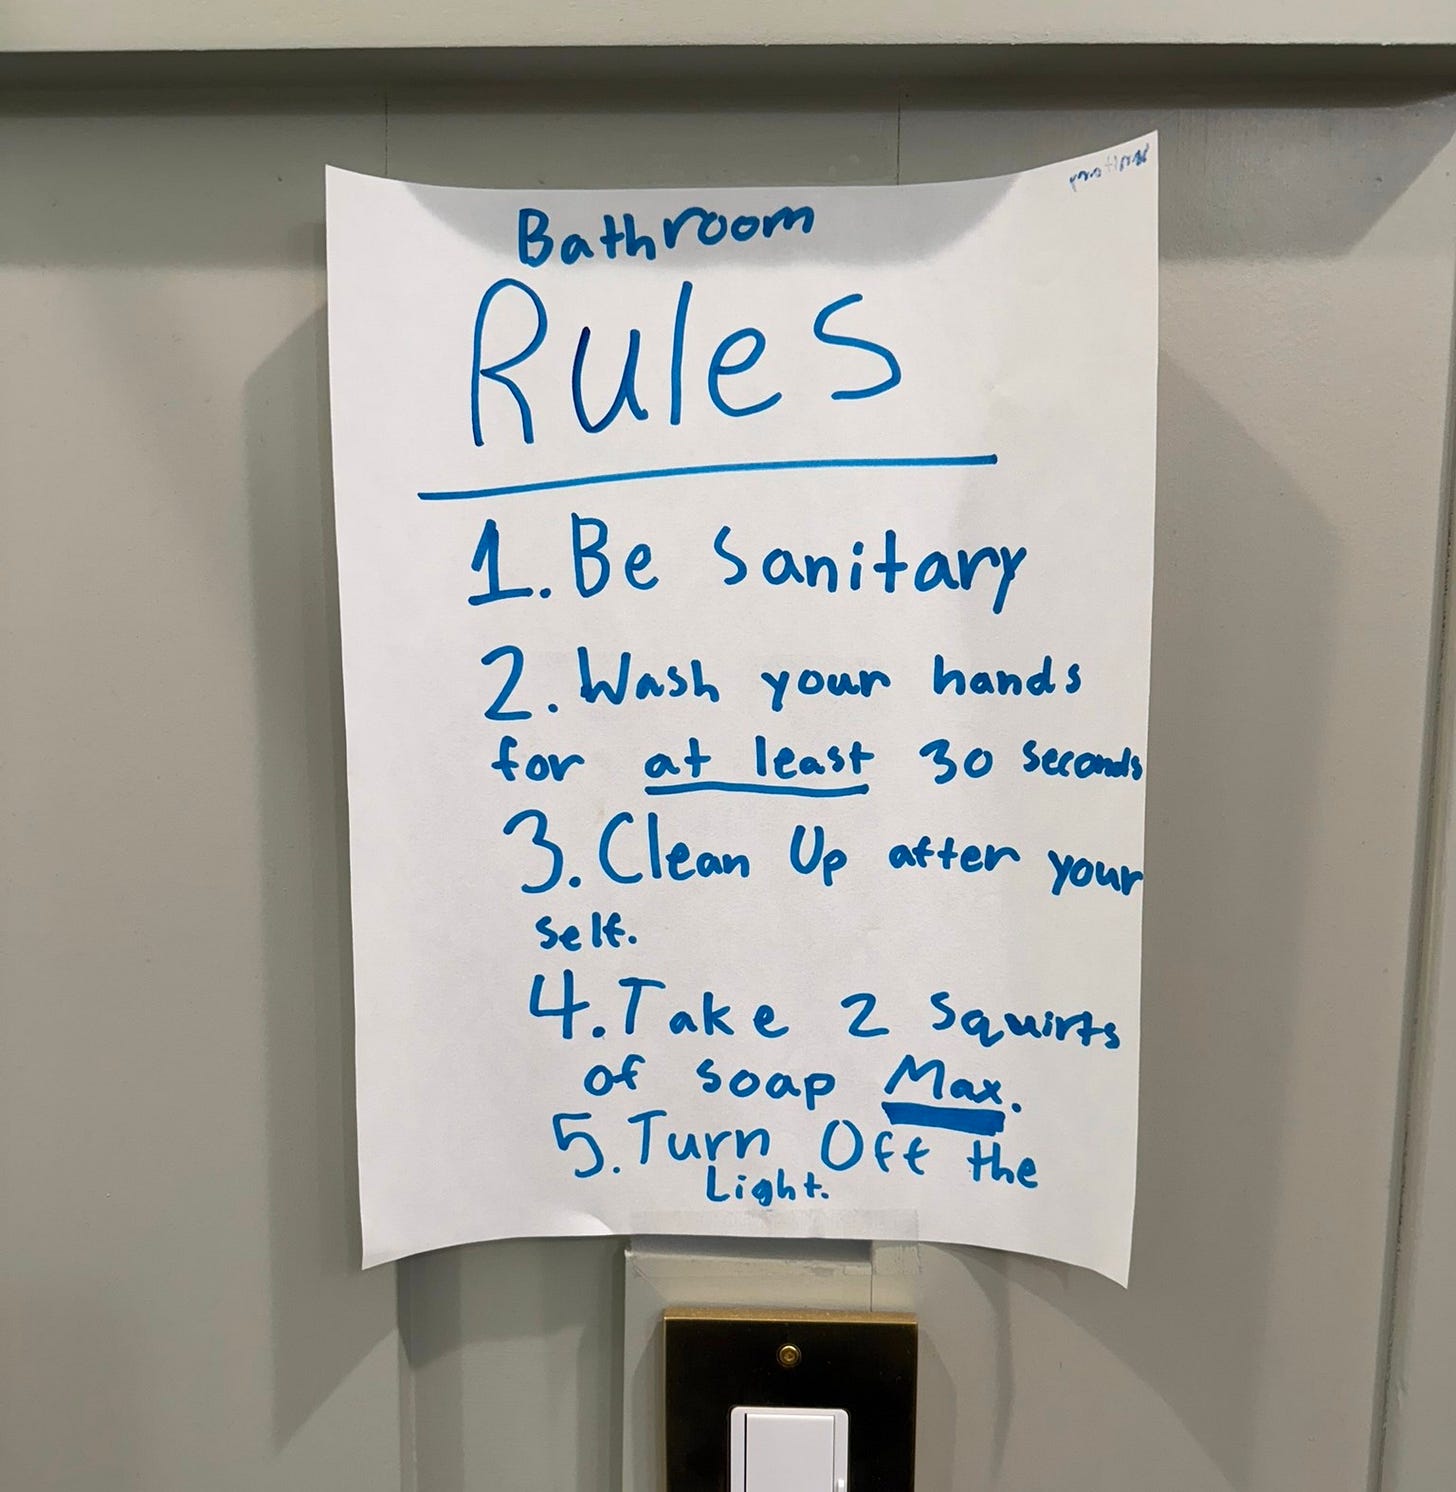 Bathroom
Rules
1. Be Sanitary
2. Wash your hands
for at least 30 seconds
3. Clean Up after your
self.
4. Take 2 Squirts
of soap Max.
5. Turn Off the
Light.